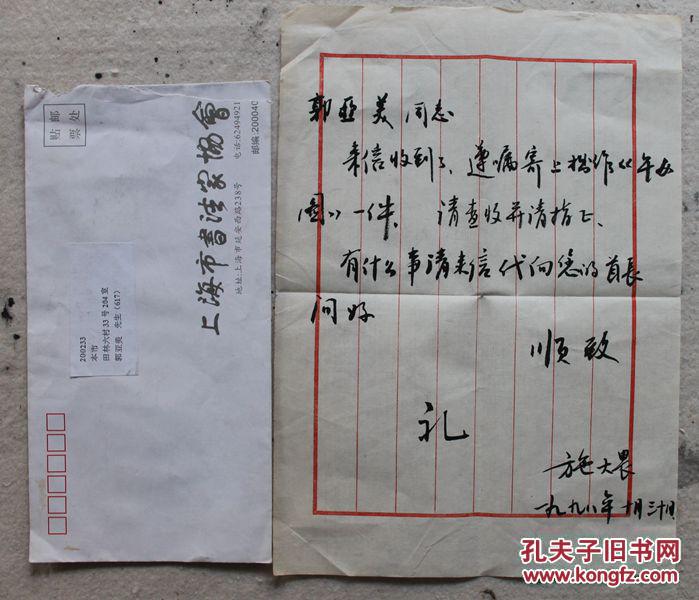 贴邮
票处
上海市书法家协会
地址:上海市延安西路238号
电话:62494921
邮编:200040
200233
本市
田林六村33号204室
郭亚美 先生(617)
郭亚美同志
来信收到了、遵嘱寄上拙作《年如
图》一件、请查收并请指正、
有什么事请来信代向您的首长
问好
顺致
礼
施大畏
一九九八年十月三十日
孔夫子旧书网
www.kongfz.com